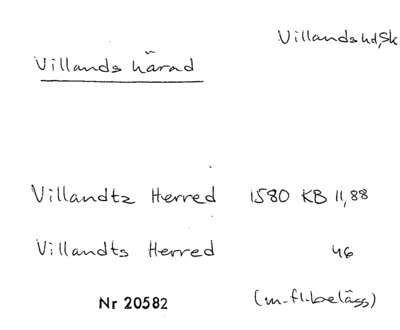 Villands hd, Sk
Villands härad
Villandtz Herred 1580 KB 11,88
Villandts Herred 46
Nr 20582 (m.fl.belägg)